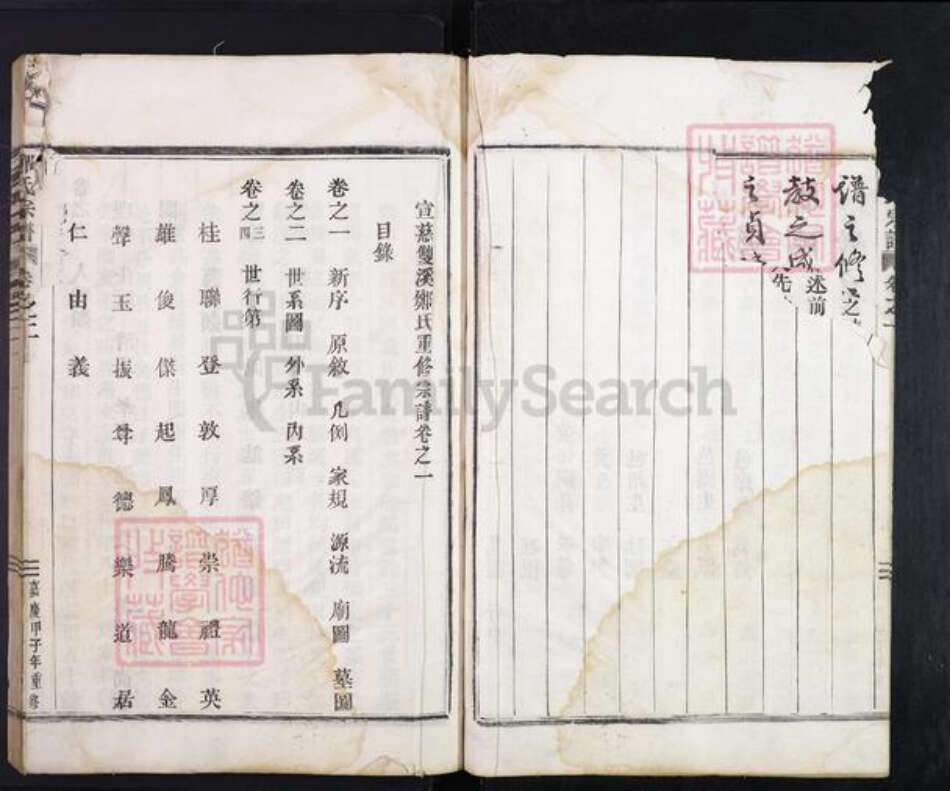 譜之修
教之成述前
先
之貞
宣慈雙溪鄭氏重修宗譜卷之一
目錄
卷之一 新序 原敘 凡例 家規 源流 廟圖 墓圖
卷之二 世系圖 外系 內系
卷之三四 世行第
桂聯登敦厚崇禮英
雄俊傑起鳳騰龍金
聲玉振尊德樂道居
仁由義
氏宗譜 卷之一
嘉慶甲子年重修
FamilySearch